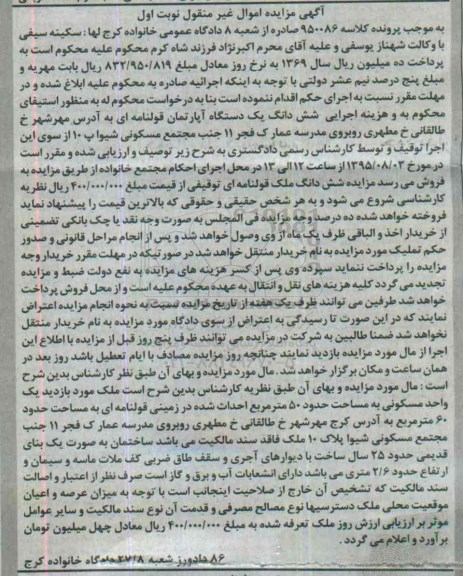 آگهی مزایده اموال غیر منقول نوبت اول
به موجب پرونده کلاسه ۹۵۰۰۸۶ صادره از شعبه ۸ دادگاه عمومی خانواده کرج لها : سکینه سیفی
با وکالت شهناز یوسفی و علیه آقای محرم اکبرنژاد فرزند شاه کرم محکوم علیه محکوم است به
پرداخت ده میلیون ریال سال ۱۳۶۹ به نرخ روز معادل مبلغ ۸۳۲/۹۵۰/۸۱۹ ریال بابت مهریه و
مبلغ پنج درصد نیم عشر دولتی با توجه به اینکه اجرائیه صادره به محکوم علیه ابلاغ شده و در
مهلت مقرر نسبت به اجرای حکم اقدام ننموده است بنا به درخواست محکوم له به منظور استیفای
محکوم به و هزینه اجرایی شش دانگ یک دستگاه آپارتمان قولنامه ای به آدرس مهرشهر خ
طالقانی خ مطهری روبروی مدرسه عمار ک فجر ۱۱ جنب مجتمع مسکونی شیوا پ ۱۰ از سوی این
اجرا توقیف و توسط کارشناس رسمی دادگستری به شرح زیر توصیف و ارزیابی شده و مقرر است
در مورخ ۱۳۹۵/۰۸/۰۳ از ساعت ۱۲ الی ۱۳ در محل اجرای احکام مجتمع خانواده از طریق مزایده به
فروش می رسد مزایده شش دانگ ملک قولنامه ای توقیفی از قیمت مبلغ ۴۰۰/۰۰۰/۰۰۰ ریال نظریه
کارشناسی شروع می شود و به هر شخص حقیقی و حقوقی که بالاترین قیمت را پیشنهاد نماید
فروخته خواهد شد ده درصد وجه مزایده فی المجلس به صورت وجه نقد یا چک بانکی تضمینی
از خریدار اخذ و الباقی ظرف یک ماه از وی وصول خواهد شد و پس از انجام مراحل قانونی و صدور
حکم تملیک مورد مزایده به نام خریدار منتقل خواهد شد در صورتیکه در مهلت مقرر خریدار وجه
مزایده را پرداخت ننماید سپرده وی پس از کسر هزینه های مزایده به نفع دولت ضبط و مزایده
تجدید می گردد کلیه هزینه های نقل و انتقال به عهده محکوم علیه است و از محل فروش پرداخت
خواهد شد طرفین می توانند ظرف یک هفته از تاریخ مزایده نسبت به نحوه انجام مزایده اعتراض
نمایند که در این صورت تا رسیدگی به اعتراض از سوی دادگاه مورد مزایده به نام خریدار منتقل
نخواهد شد ضمنا طالبین به شرکت در مزایده می توانند ظرف پنج روز قبل از مزایده با اطلاع این
اجرا از مال مورد مزایده بازدید نمایند چنانچه روز مزایده مصادف با ایام تعطیل باشد روز بعد در
همان ساعت و مکان برگزار خواهد شد . مال مورد مزایده و بهای آن طبق نظر کارشناس بدین شرح
است : مال مورد مزایده و بهای آن طبق نظریه کارشناس بدین شرح است ملک مورد بازدید یک
واحد مسکونی به مساحت حدود ۵۰ مترمربع احداث شده در زمینی قولنامه ای به مساحت حدود
۶۰ مترمربع به آدرس کرج مهرشهر خ طالقانی خ مطهری روبروی مدرسه عمار ک فجر ۱۱ جنب
مجتمع مسکونی شیوا پلاک ۱۰ ملک فاقد سند مالکیت می باشد ساختمان به صورت یک بنای
قدیمی حدود ۲۵ سال ساخت با دیوارهای آجری و سقف طاق ضربی کف ملات ماسه و سیمان و
ارتفاع حدود ۲/۶ متری می باشد دارای انشعابات آب و برق و گاز است صرف نظر از اعتبار و اصالت
سند مالکیت که تشخیص آن خارج از صلاحیت اینجانب است با توجه به میزان عرصه و اعیان
موقعیت محلی ملک دسترسیها نوع مصالح مصرفی و قدمت آن نوع سند مالکیت و سایر عوامل
موثر بر ارزیابی ارزش روز ملک تعرفه شده به مبلغ ۴۰۰/۰۰۰/۰۰۰ ریال معادل چهل میلیون تومان
برآورد و اعلام می گردد .
۸۶ دادورز شعبه ۲۷/۸ دادگاه خانواده کرج